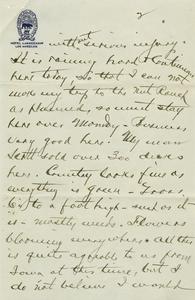 2
HOTEL LANKERSHIM
LOS ANGELES
with serious injury.
It is raining hard & continuing
here today so that I can not
make my trip to the Nut Ranch
as planned, so must stay
here over Monday. Business
very good here. My man
Scott sold over 300 desks
here. Country looks fine as
everything is green - Grass
6 in to a foot high - such as it
is - mostly weeds. Flowers
blooming everywhere. All this
is quite agreeable to us from
Iowa at this time, but I
do not believe I would